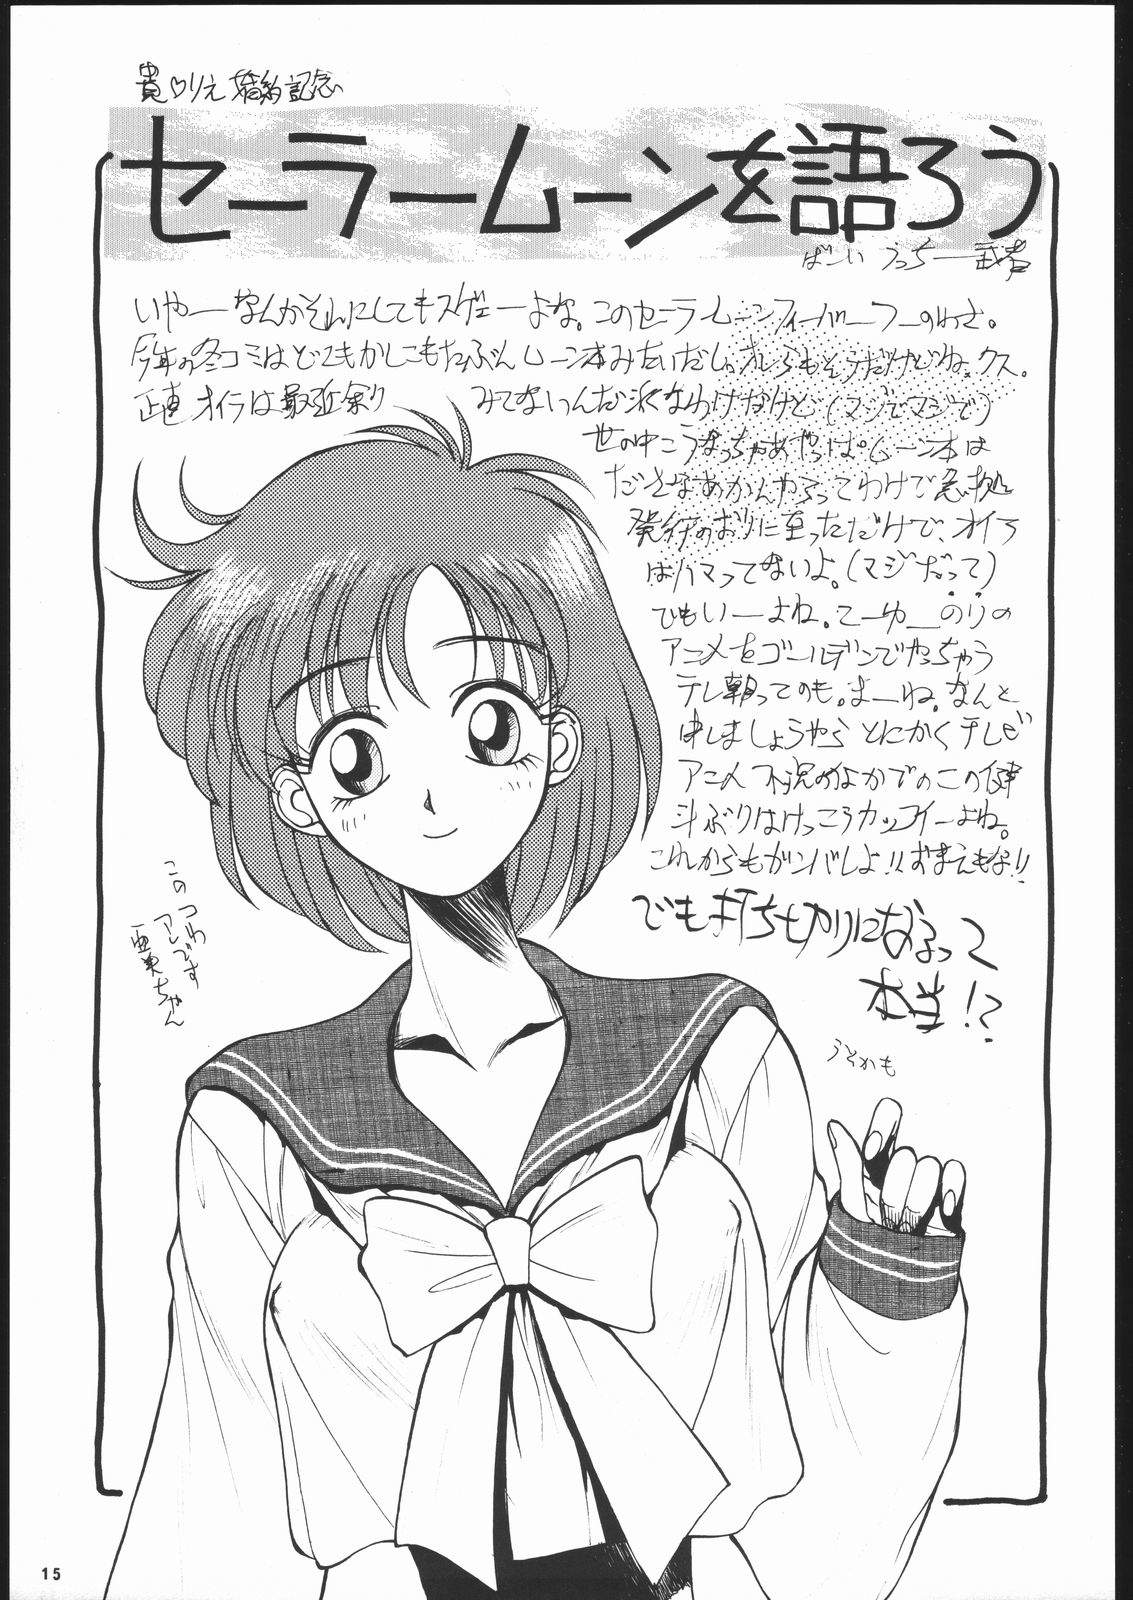 貴♡りえ婚約記念
セーラームーンを語ろう
ばーい うっちー武者
いやーなんかそれにしてもスゲェーよな。このセーラームーンフィーバーブーのわさ。
今年の冬コミはどこもかしこもたぶんムーン本みたいだし。オレらもそうだけどね。クス。
正直オイラは最近余り みてないんだ派なわけだけど(マジでマジで)
世の中こうなっちゃあやっぱムーン本は
ださなあかんやろってわけで急拠
発行のおりに至っただけで、オイラ
はハマってないよ。(マジだって)
でもいーよね。こーゆーのりの
アニメをゴールデンでやっちゃう
テレ朝ってのも。まーね。なんと
申しましょうやら とにかくテレビ
アニメ不況のなかでのこの健
斗ぶりはけっこうカッコイーよね。
これからもガンバレよ!!おまえもな!!
でも打ち切りになるって
本当!?
うそかも
このつわ
アレです
亜美ちゃん
15